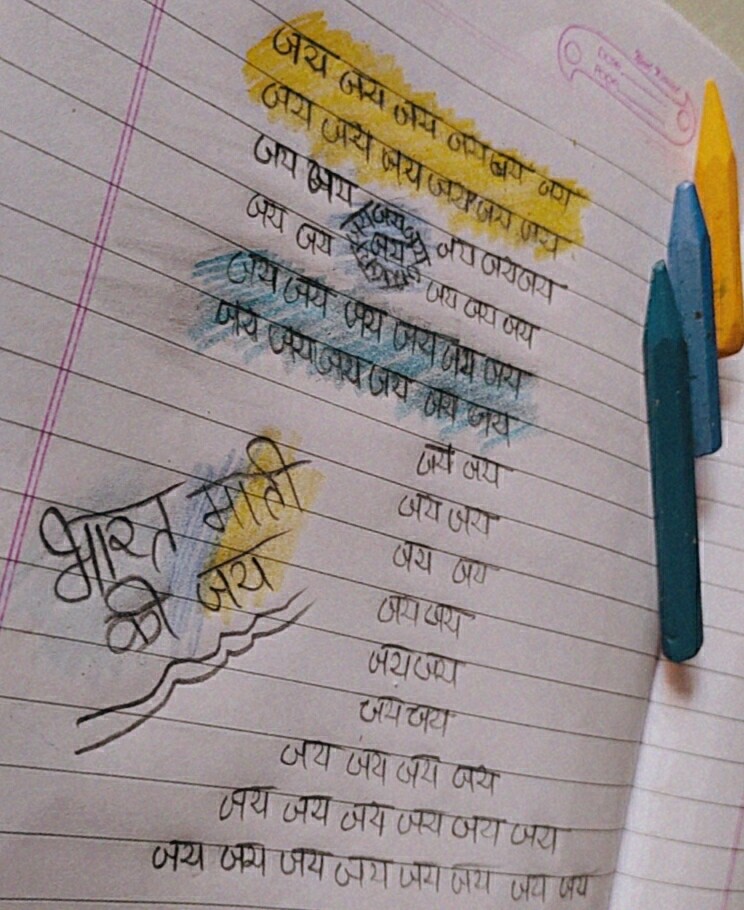 जय जय जय जय जय जय
जय जय जय जय जय जय
जय जय जय जय जय जय
जय जय जय जय जय जय
जय जय जय जय जय जय
जय जय जय जय जय जय
जय जय
जय जय
जय जय
जय जय
जय जय
जय जय
जय जय जय जय
जय जय जय जय जय जय
जय जय जय जय जय जय जय जय
भारत माता
की जय